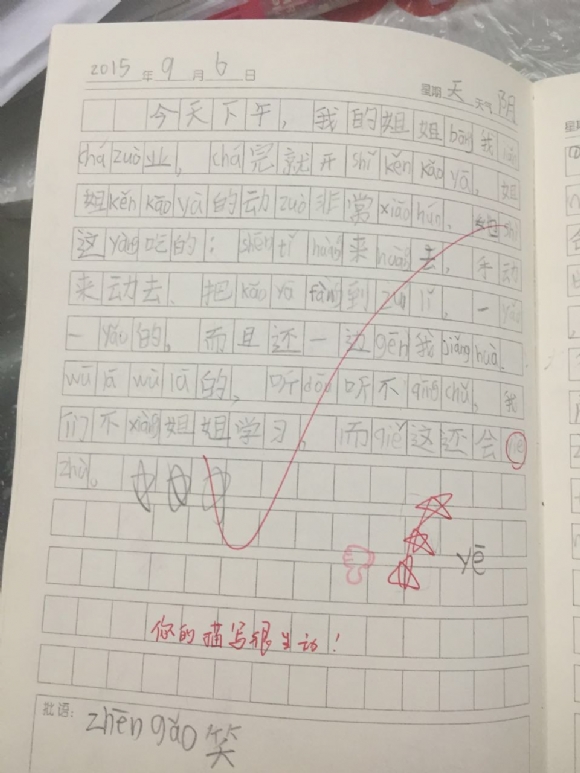 2015年9月6日
星期天 天气阴
今天下午，我的姐姐bāng我
chá zuò业，chá完就开shǐ kěn kǎo yā，姐
姐kěn kǎo yā的动zuò非常xiào hún，
这yàng吃的：shēn tǐ 来 去，手动
来动去，把kǎo yā fàng到zuǐ lǐ，一yǎo
一yǎo的，而且还一边gēn我jiǎng huà
wū lā wū lā的，听dōu听不qīng chǔ，我
们不xiàng姐姐学习，而qiě这还会yē
zhù。
yē
你的描写很生动！
批语：zhēn gǎo笑